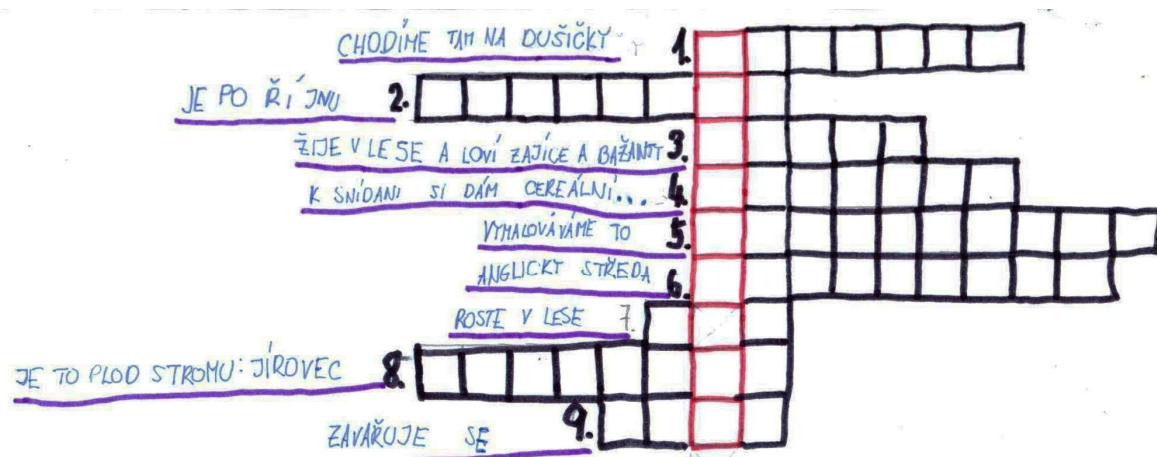 CHODÍME TAM NA DUŠIČKY 1.
JE PO ŘÍJNU 2.
ŽIJE V LESE A LOVÍ ZAJÍCE A BAŽANTY 3.
K SNÍDANI SI DÁM CEREÁLNÍ... 4.
VYMALOVÁVÁME TO 5.
ANGLICKY STŘEDA 6.
ROSTE V LESE 7.
JE TO PLOD STROMU: JÍROVEC 8.
ZAVAŘUJE SE 9.